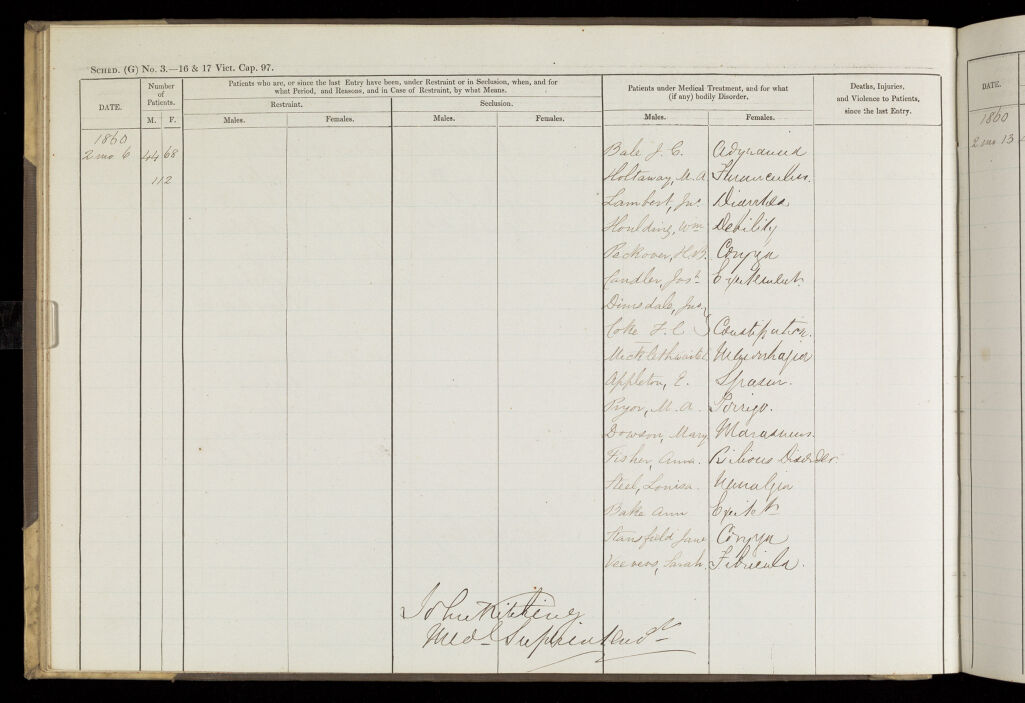 SCHED. (G) No. 3.—16 & 17 Vict. Cap. 97.
DATE.
Number of Patients.
M. F.
Patients who are, or since the last Entry have been, under Restraint or in Seclusion, when, and for
what Period, and Reasons, and in Case of Restraint, by what Means.
Restraint.
Seclusion.
Males. Females. Males. Females.
Patients under Medical Treatment, and for what
(if any) bodily Disorder.
Males. Females.
Deaths, Injuries,
and Violence to Patients,
since the last Entry.
1860
2 mo 6 44 68
112
Bale J. C.
Holtaway, M. A
Lambert, Jno Diarrhea
Houlding, Wm Debility
Peckover, H.B. Coryza
Candler, Josh Excitement
Dimsdale, Jno
Coke F. C Constipation.
Micklethwaite Menorrhagia
Appleton, E. Spasm.
Pryor, M. A. Porrigo.
Dowson, Mary Marasmus.
Fisher, Anna. Bilious Disorder
Steel, Louisa. Neuralgia
Bake Ann Excitet
Stansfield Jane Coryza
Veevers, Sarah. Febricula.
John Kitching
Medl Superintendt
DATE.
1860
2 mo 13